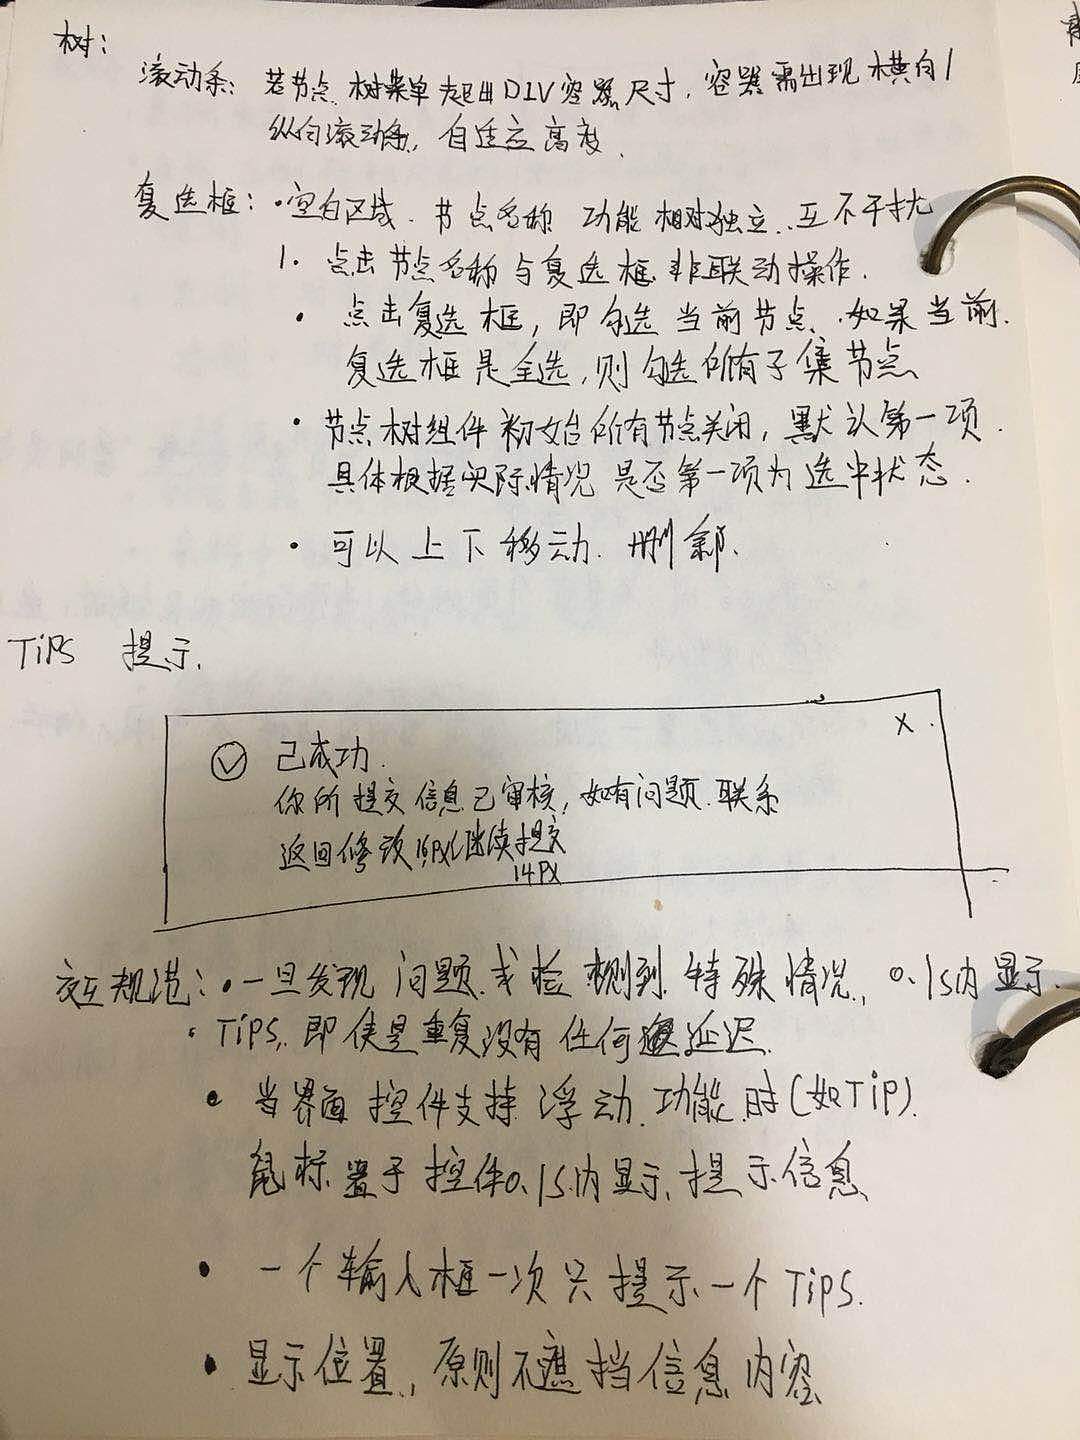 树：
滚动条：若节点、树菜单超出DIV容器尺寸，容器需出现横向/
纵向滚动条，自适应高度.
复选框：·空白区域.节点名称 功能相对独立..互不干扰
1. 点击节点名称与复选框非联动操作.
· 点击复选框，即勾选当前节点、如果当前.
复选框是全选，则勾选所有子集节点
· 节点树组件初始所有节点关闭，默认第一项.
具体根据实际情况是否第一项为选中状态.
· 可以上下移动.删除.
TiPS 提示.
X.
已成功.
你所提交信息已审核，如有问题.联系
返回修改 继续提交
14PX
交互规范：·一旦发现问题.或检测到特殊情况，0.1s内显示.
· TiPS，即使是重复没有任何延迟.
· 当界面控件支持浮动.功能.时(如TiP).
鼠标置于控件0.1s内显示、提示信息
· 一个输入框一次只提示一个TiPS.
· 显示位置，原则不遮挡信息内容